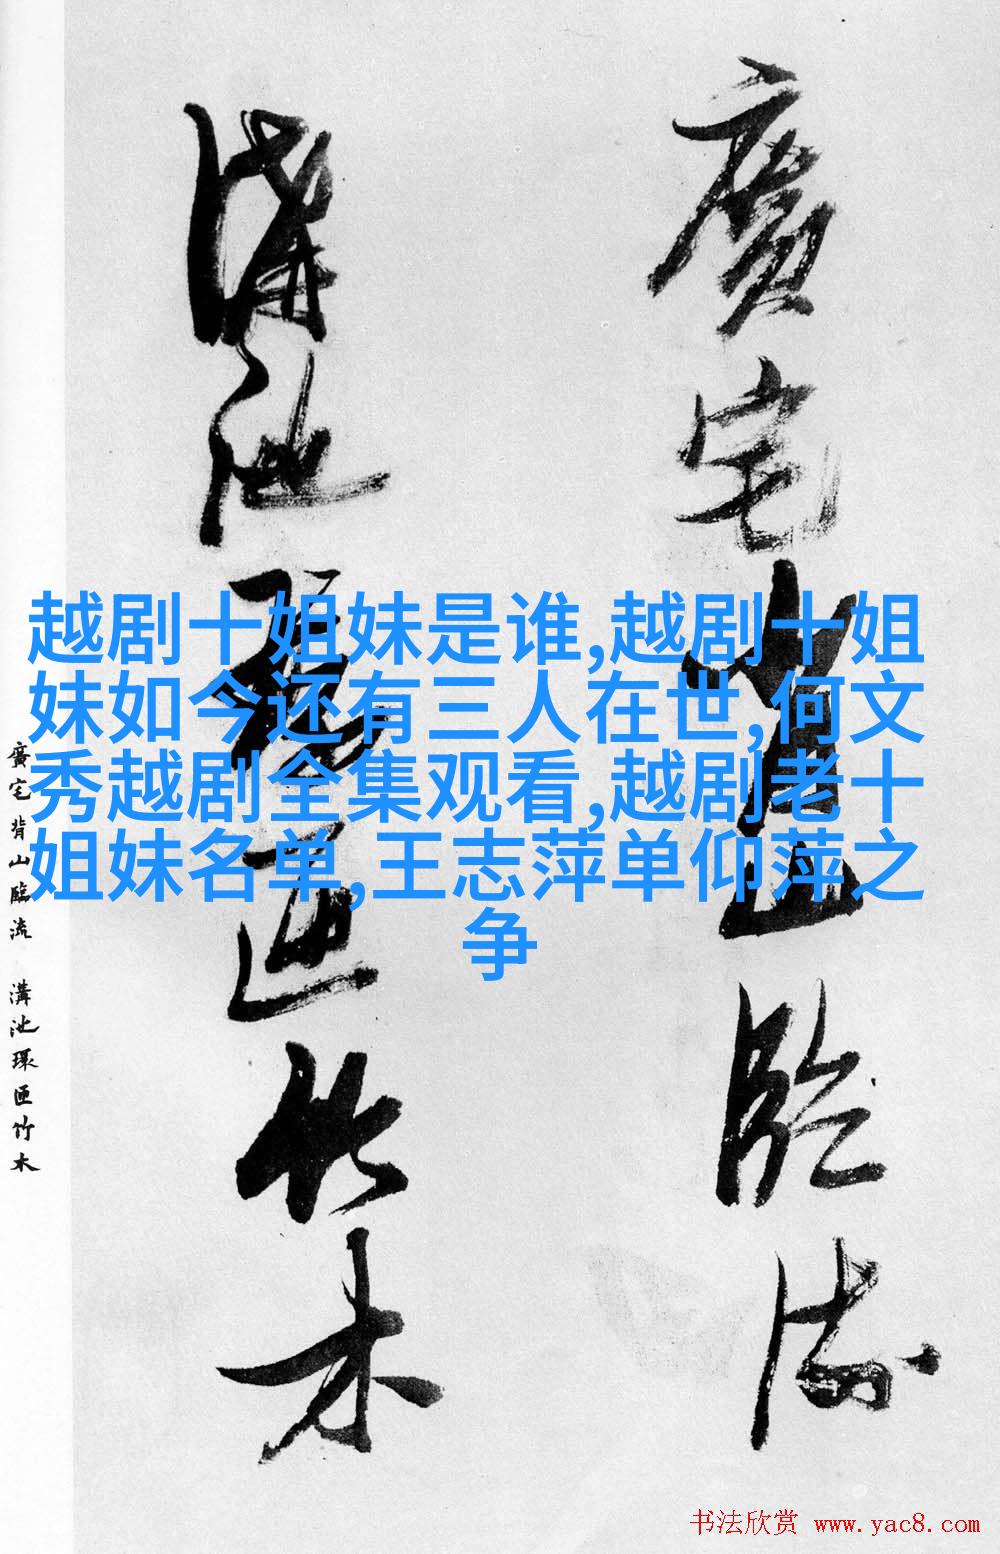 廣宅背山臨流
溝池環匝竹木
越剧十姐妹是谁,越剧十姐
妹如今还有三人在世,何文
秀越剧全集观看,越剧老十
姐妹名单,王志萍单仰萍之
争
廣宅背山臨流 溝池環匝竹木
书法欣赏 www.yac8.com